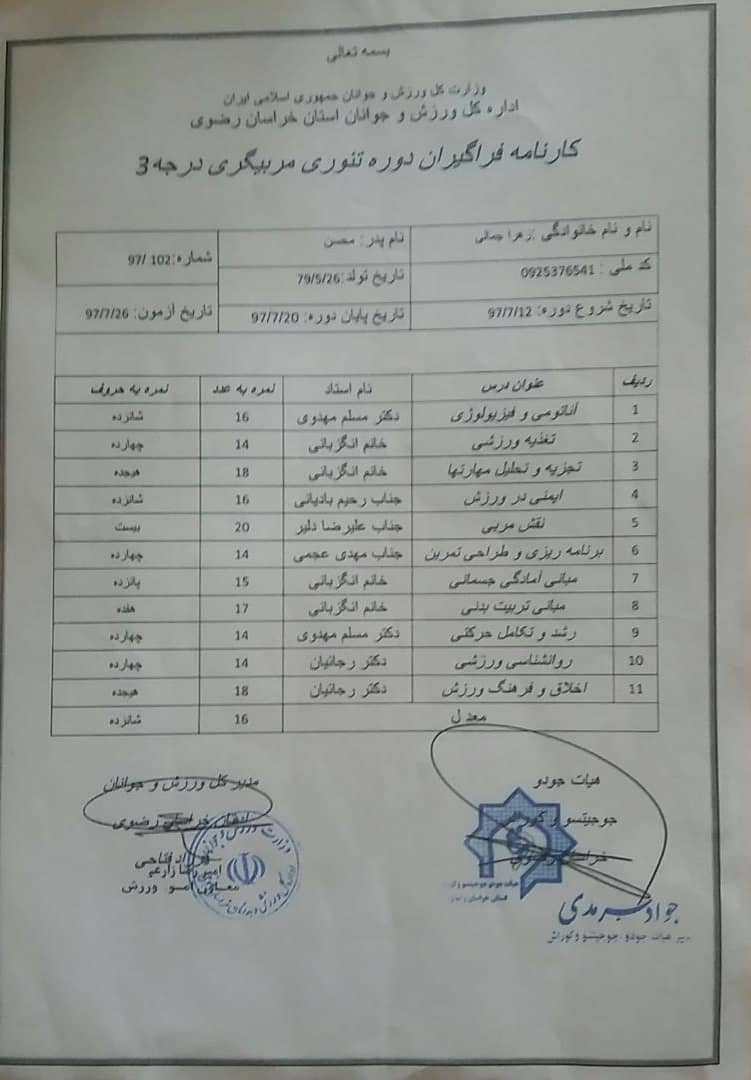 بسمه تعالی
وزارت کل ورزش و جوانان جمهوری اسلامی ایران
اداره کل ورزش و جوانان استان خراسان رضوی
کارنامه فراگیران دوره تئوری مربیگری درجه 3
نام و نام خانوادگی :زهرا جمالی نام پدر: محسن شماره: 102 /97
کد ملی : 0925376541 تاریخ تولد:79/5/26
تاریخ شروع دوره: 97/7/12 تاریخ پایان دوره: 97/7/20 تاریخ آزمون: 97/7/26
ردیف عنوان درس نام استاد نمره به عدد نمره به حروف
1 آناتومی و فیزیولوژی دکتر مسلم مهدوی 16 شانزده
2 تغذیه ورزشی خانم انگزبانی 14 چهارده
3 تجزیه و تحلیل مهارتها خانم انگزبانی 18 هیجده
4 ایمنی در ورزش جناب رحیم بادپانی 16 شانزده
5 نقش مربی جناب علیرضا دلیر 20 بیست
6 برنامه ریزی و طراحی تمرین جناب مهدی عجمی 14 چهارده
7 مبانی آمادگی جسمانی خانم انگزبانی 15 پانزده
8 مبانی تربیت بدنی خانم انگزبانی 17 هفده
9 رشد و تکامل حرکتی دکتر مسلم مهدوی 14 چهارده
10 روانشناسی ورزشی دکتر رجائیان 14 چهارده
11 اخلاق و فرهنگ ورزش دکتر رجائیان 18 هیجده
معدل 16 شانزده
هیات جودو
جوجیتسو و کوراش
خراسان رضوی
جواد سرمدی
هیات جودو، جوجیتسو و کوراش
مدیر کل ورزش و جوانان
استان خراسان رضوی
معاون امور ورزش